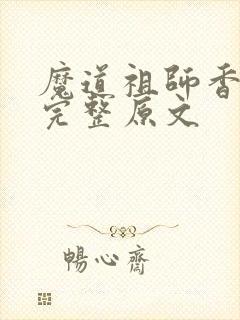 魔道祖师香
完整原文
暢心齋